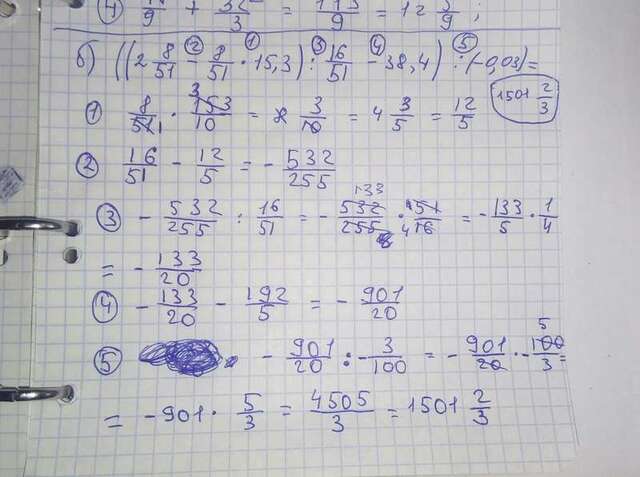 ④ /9 + 32/3 = 113/9 = 12 5/9 ;
б) ((2 8/51 - 8/51 · 15,3) : 16/51 - 38,4) : (-0,03) =
② ① ③ ④ ⑤
1501 2/3
① 8/51 · 153/10 = 8 3/10 = 4 3/5 = 12/5
② 16/51 - 12/5 = - 532/255
③ - 532/255 : 16/51 = - 532/255 · 51/16 = - 133/5 · 1/4
= - 133/20
④ - 133/20 - 192/5 = - 901/20
⑤ - 901/20 : - 3/100 = - 901/20 · - 100/3 =
= -901 · 5/3 = 4505/3 = 1501 2/3